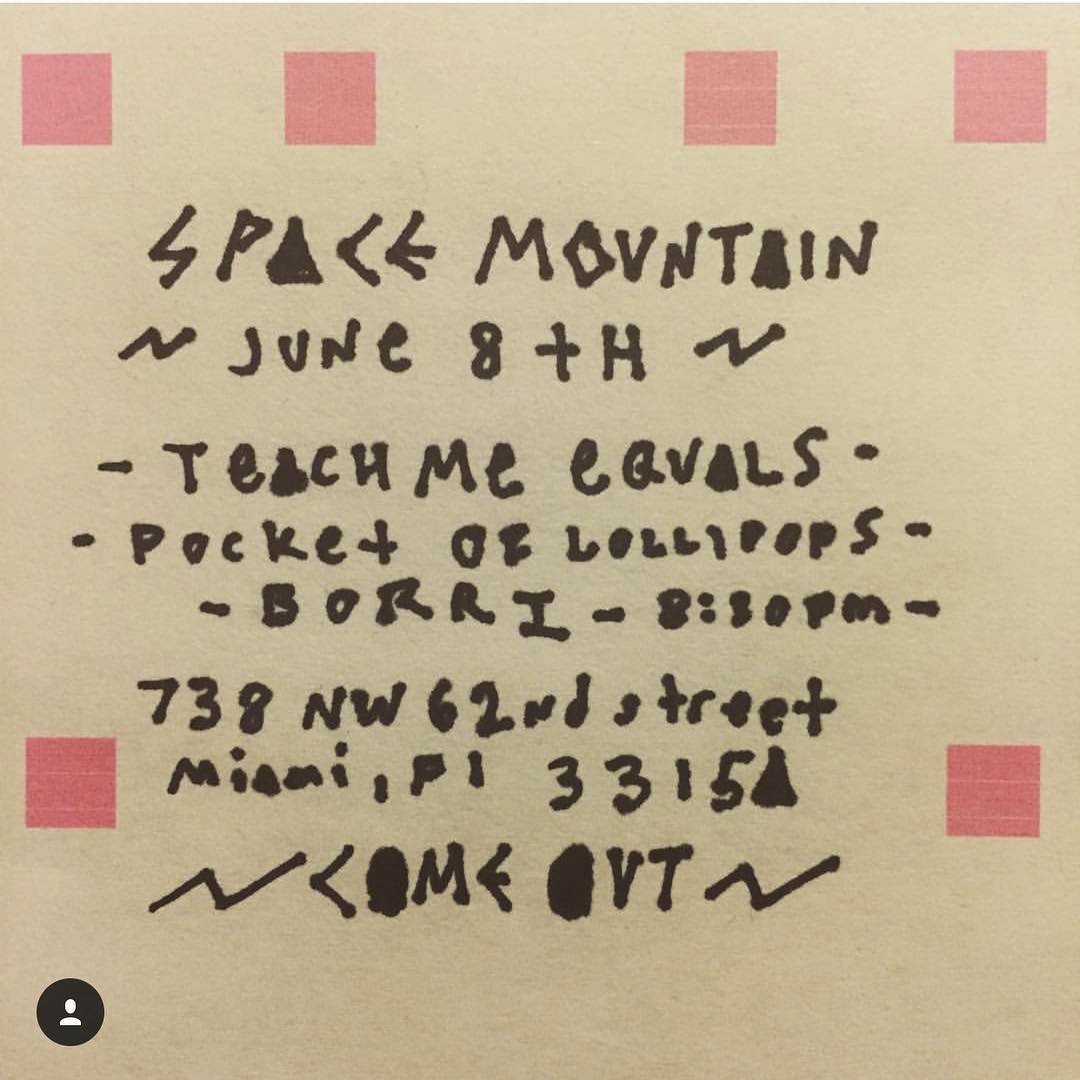 SPACE MOUNTAIN
~ JUNe 8tH ~
- TeACH Me eQUALS -
- POcket OF LOLLIPOPS -
- BORRI - 8:30pm -
738 NW 62nd street
Miami, Fl 33150
~ COME OUT ~